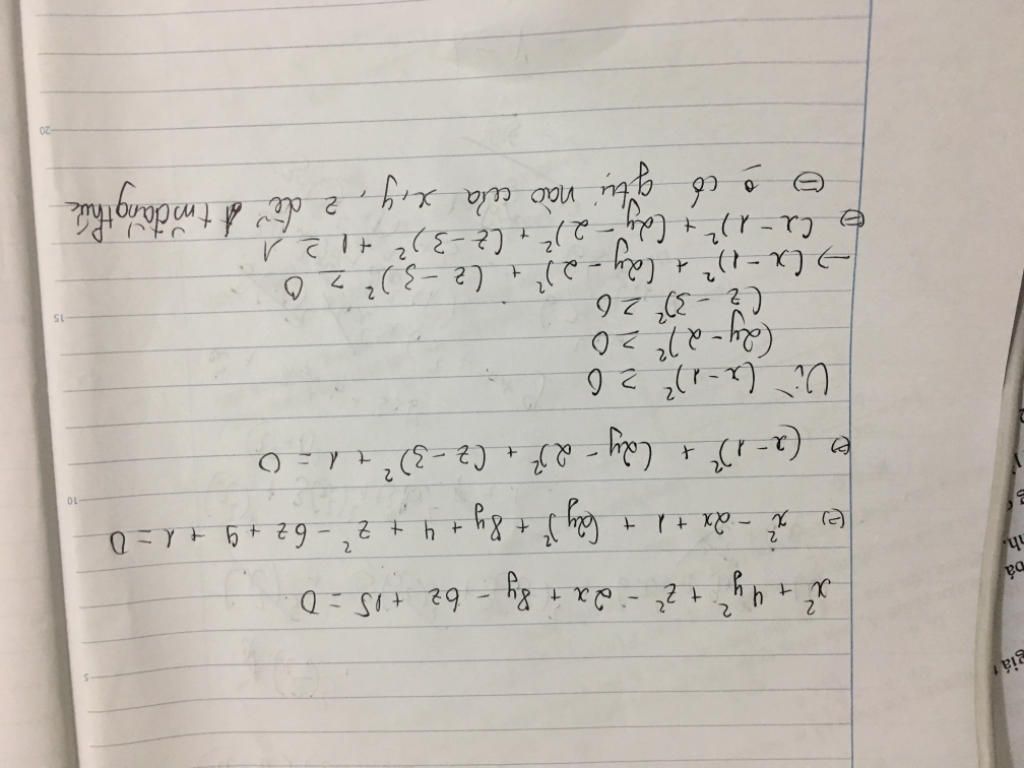 x² + 4y² + z² - 2x + 8y - 6z + 15 = 0
(=) x² - 2x + 1 + (2y)² + 8y + 4 + z² - 6z + 9 + 1 = 0
(=) (x - 1)² + (2y - 2)² + (z - 3)² + 1 = 0
Vì (x - 1)² ≥ 0
(2y - 2)² ≥ 0
(z - 3)² ≥ 0
→ (x - 1)² + (2y - 2)² + (z - 3)² ≥ 0
(=) (x - 1)² + (2y - 2)² + (z - 3)² + 1 ≥ 1
(=) có gtrị nào của x, y, z để tm đẳng thức
5
10
15
20
giá